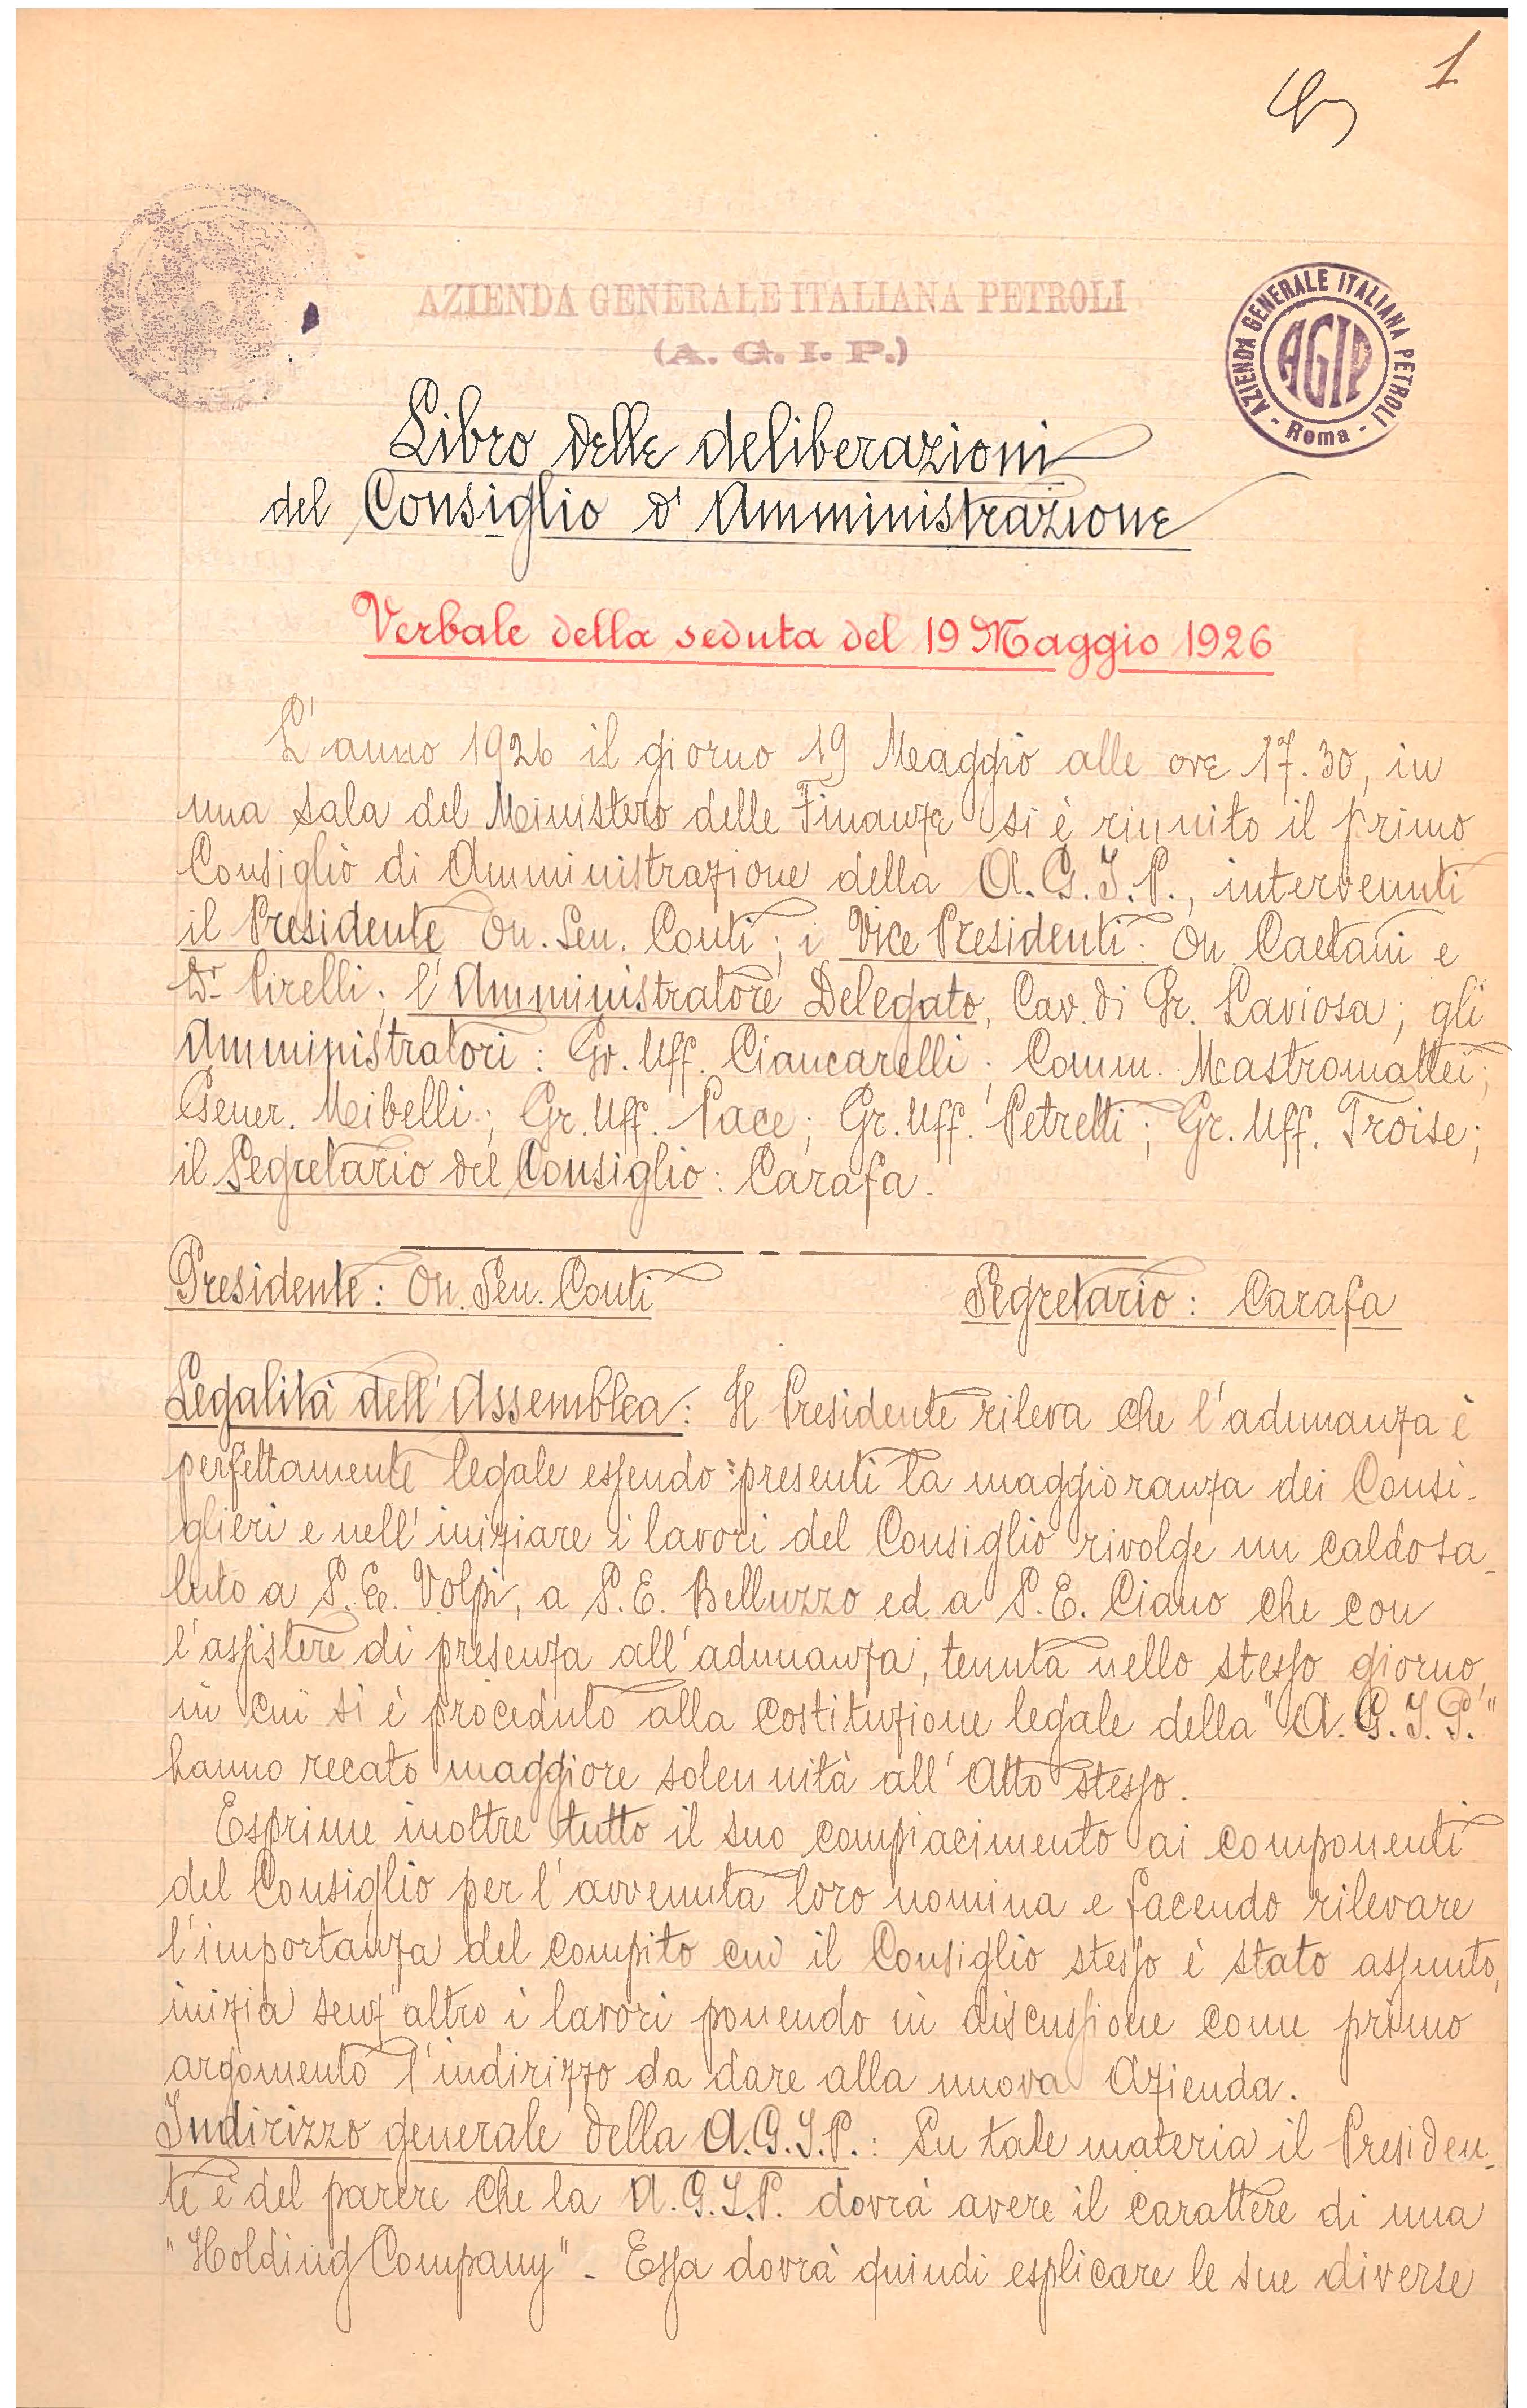 1
AZIENDA GENERALE ITALIANA PETROLI
(A. G. I. P.)
AZIENDA GENERALE ITALIANA PETROLI
AGIP
- Roma -
Libro delle deliberazioni
del Consiglio d'Amministrazione
Verbale della seduta del 19 Maggio 1926
L'anno 1926 il giorno 19 Maggio alle ore 17.30, in
una sala del Ministero delle Finanze si è riunito il primo
Consiglio di Amministrazione della A.G.I.P., intervenuti
il Presidente On. Sen. Conti; i Vice Presidenti: On. Caetani e
Dr. Pirelli; l'Amministratore Delegato, Cav. di Gr. Laviosa; gli
Amministratori: Gr. Uff. Ciancarelli; Comm. Mastromattei;
Gener. Mibelli; Gr. Uff. Pace; Gr. Uff. Petretti; Gr. Uff. Troise;
il Segretario del Consiglio: Carafa.
Presidente: On. Sen. Conti Segretario: Carafa
Legalità dell'Assemblea: Il Presidente rileva che l'adunanza è
perfettamente legale essendo presenti la maggioranza dei Consi-
glieri e nell'iniziare i lavori del Consiglio rivolge un caldo sa-
luto a S.E. Volpi, a S.E. Belluzzo ed a S.E. Ciano che con
l'assistere di presenza all'adunanza, tenuta nello stesso giorno,
in cui si è proceduto alla costituzione legale della "A.G.I.P."
hanno recato maggiore solennità all'Atto stesso.
Esprime inoltre tutto il suo compiacimento ai componenti
del Consiglio per l'avvenuta loro nomina e facendo rilevare
l'importanza del compito cui il Consiglio stesso è stato assunto,
inizia senz'altro i lavori ponendo in discussione come primo
argomento l'indirizzo da dare alla nuova Azienda.
Indirizzo generale della A.G.I.P.: Su tale materia il Presiden-
te è del parere che la A.G.I.P. dovrà avere il carattere di una
"Holding Company" - Essa dovrà quindi esplicare le sue diverse